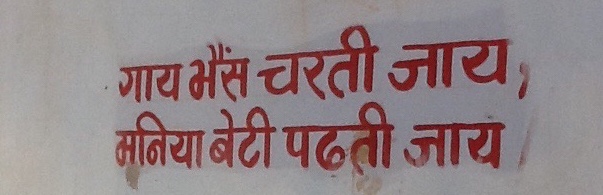 गाय भैंस चरती जाय,
मनिया बेटी पढती जाय